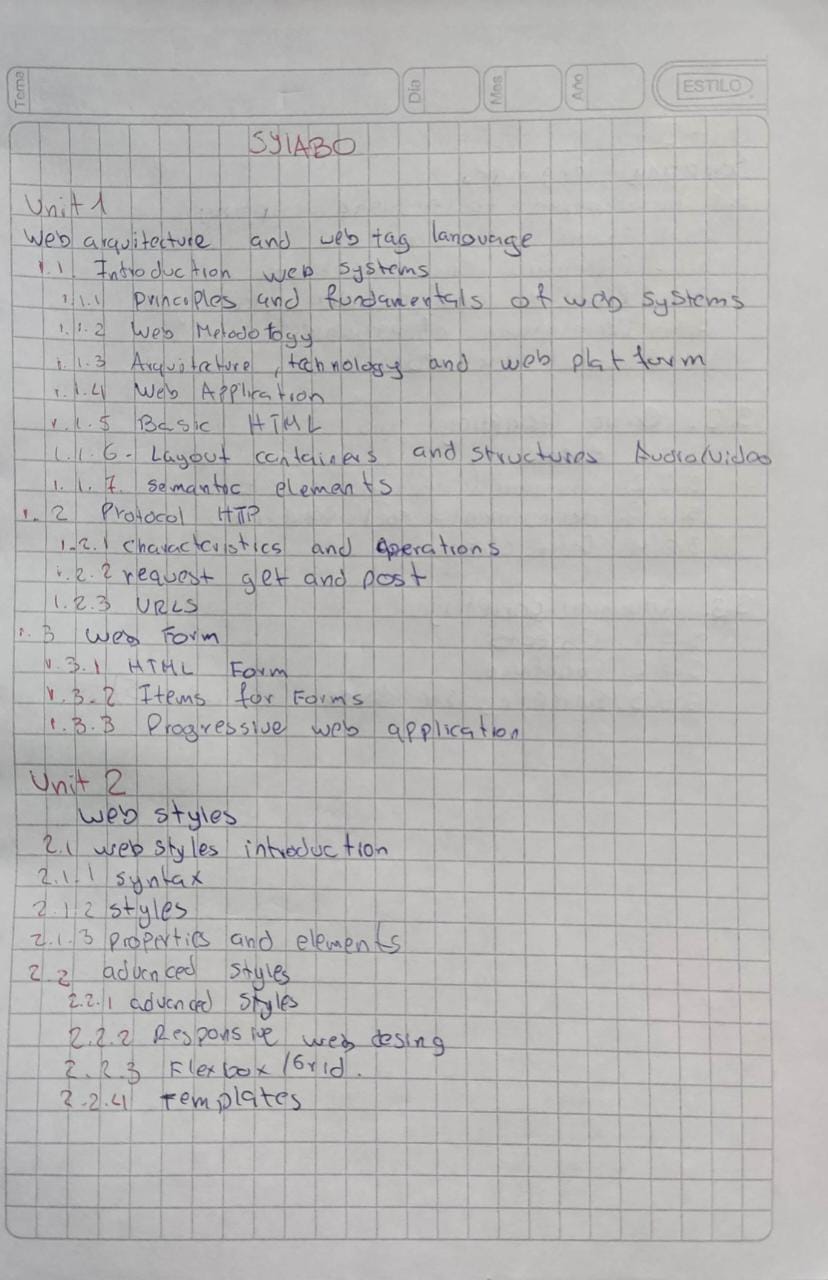 Tema
Día
Mes
Año
ESTILO
SYlABO
Unit 1
Web arquitecture and web tag language
1.1. Introduction web systems
1.1.1 principles and fundamentals of web systems
1.1.2 Web Metodology
1.1.3 Arquitecture, technology and web platform
1.1.4 Web Application
1.1.5 Basic HTML
1.1.6- Layout containers and structures Audio/video
1.1.7. semantic elements
1.2 Protocol HTTP
1.2.1 characteristics and operations
1.2.2 request get and post
1.2.3 URLS
1.3 Web Form
1.3.1 HTML Form
1.3.2 Items for Forms
1.3.3 Progressive web application
Unit 2
web styles
2.1 web styles introduction
2.1.1 syntax
2.1.2 styles
2.1.3 properties and elements
2.2 advanced styles
2.2.1 advanced styles
2.2.2 Responsive web desing
2.2.3 Flexbox/Grid.
2.2.4 Templates